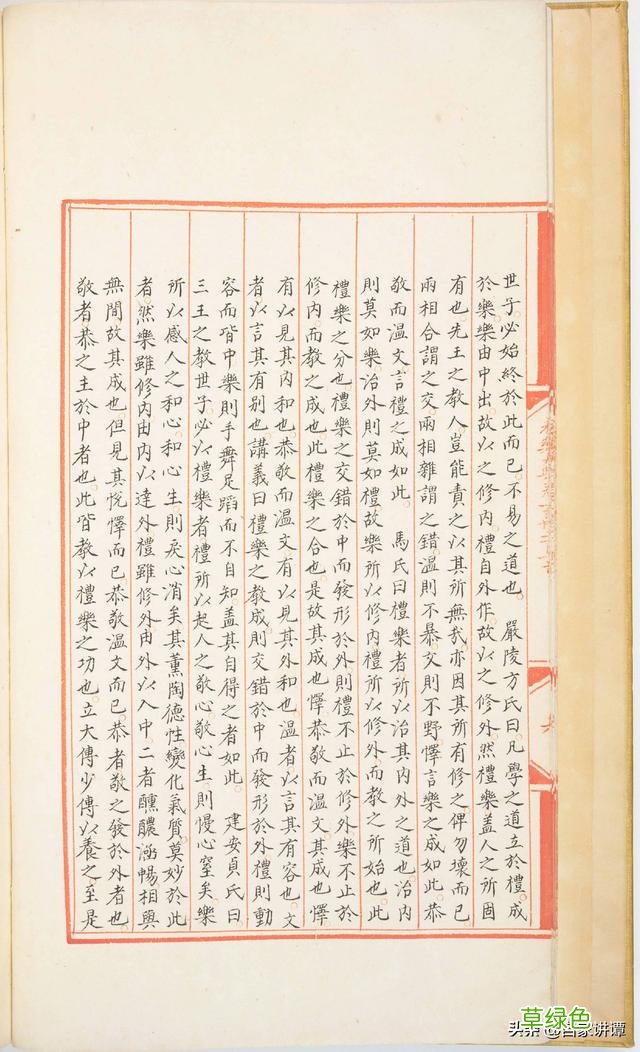 世子必始終於此而已不易之道也　嚴陵方氏曰凡學之道立於禮成
於樂樂由中出故以之修內禮自外作故以之修外然禮樂蓋人之所固
有也先王之教人豈能責之以其所無哉亦因其所有修之俾勿壞而已
兩相合謂之交兩相雜謂之錯溫則不暴文則不野懌言樂之成如此恭
敬而溫文言禮之成如此　馬氏曰禮樂者所以治其內外之道也治內
則莫如樂治外則莫如禮故樂所以修內禮所以修外而教之所始也此
禮樂之分也禮樂之交錯於中而發形於外則禮不止於修外樂不止於
修內而教之成也此禮樂之合也是故其成也懌恭敬而溫文其成也懌
有以見其內和也恭敬而溫文有以見其外和也溫者以言其有容也文
者以言其有別也講義曰禮樂之教成則交錯於中而發形於外禮則動
容而皆中樂則手舞足蹈而不自知蓋其自得之者如此　建安貞氏曰
三王之教世子必以禮樂者禮所以起人之敬心敬心生則慢心窒矣樂
所以感人之和心和心生則戾心消矣其薰陶德性變化氣質莫妙於此
者然樂雖修內由內以達外禮雖修外由外以入中二者醺醲涵暢相與
無間故其成也但見其悅懌而已恭敬溫文而已恭者敬之發於外者也
敬者恭之主於中者也此皆教以禮樂之功也立大傅少傅以養之至是
草绿色
头条 @百家讲谭